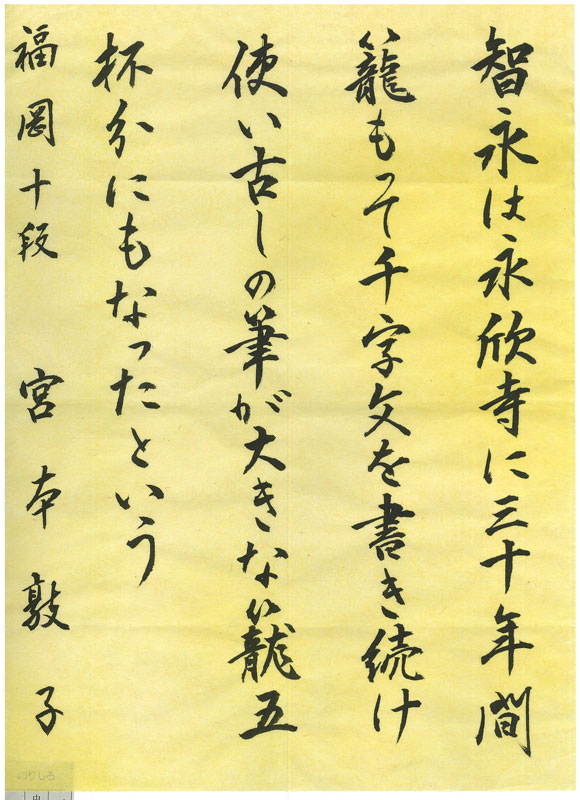 智永は永欣寺に三十年間
籠もって千字文を書き続け
使い古しの筆が大きな籠五
杯分にもなったという
福岡十段 宮本敦子
のりしろ